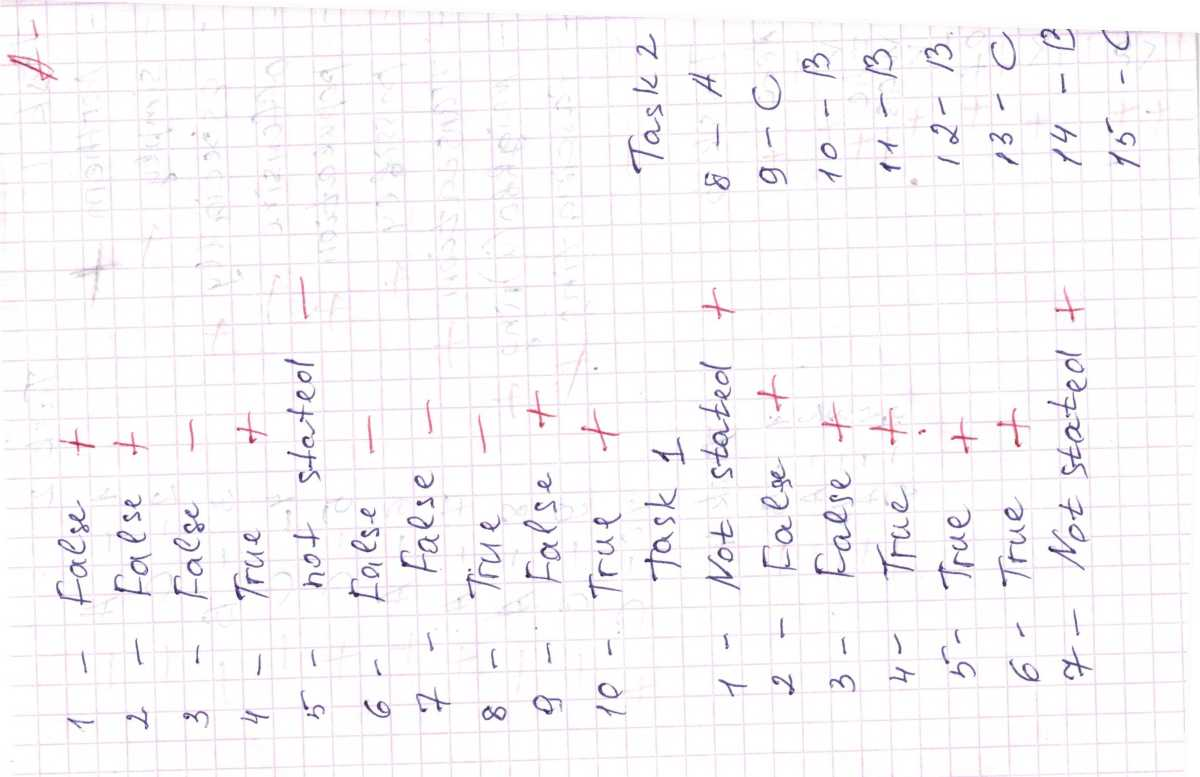 A-
1 - False +
2 - False +
3 - False -
4 - True +
5 - not stated -
6 - False -
7 - False -
8 - True -
9 - False +
10 - True +
Task 1
1 - Not stated +
2 - False +
3 - False +
4 - True +
5 - True +
6 - True +
7 - Not stated +
Task 2
8 - A
9 - C
10 - B
11 - B
12 - B
13 - C
14 - B
15 - C